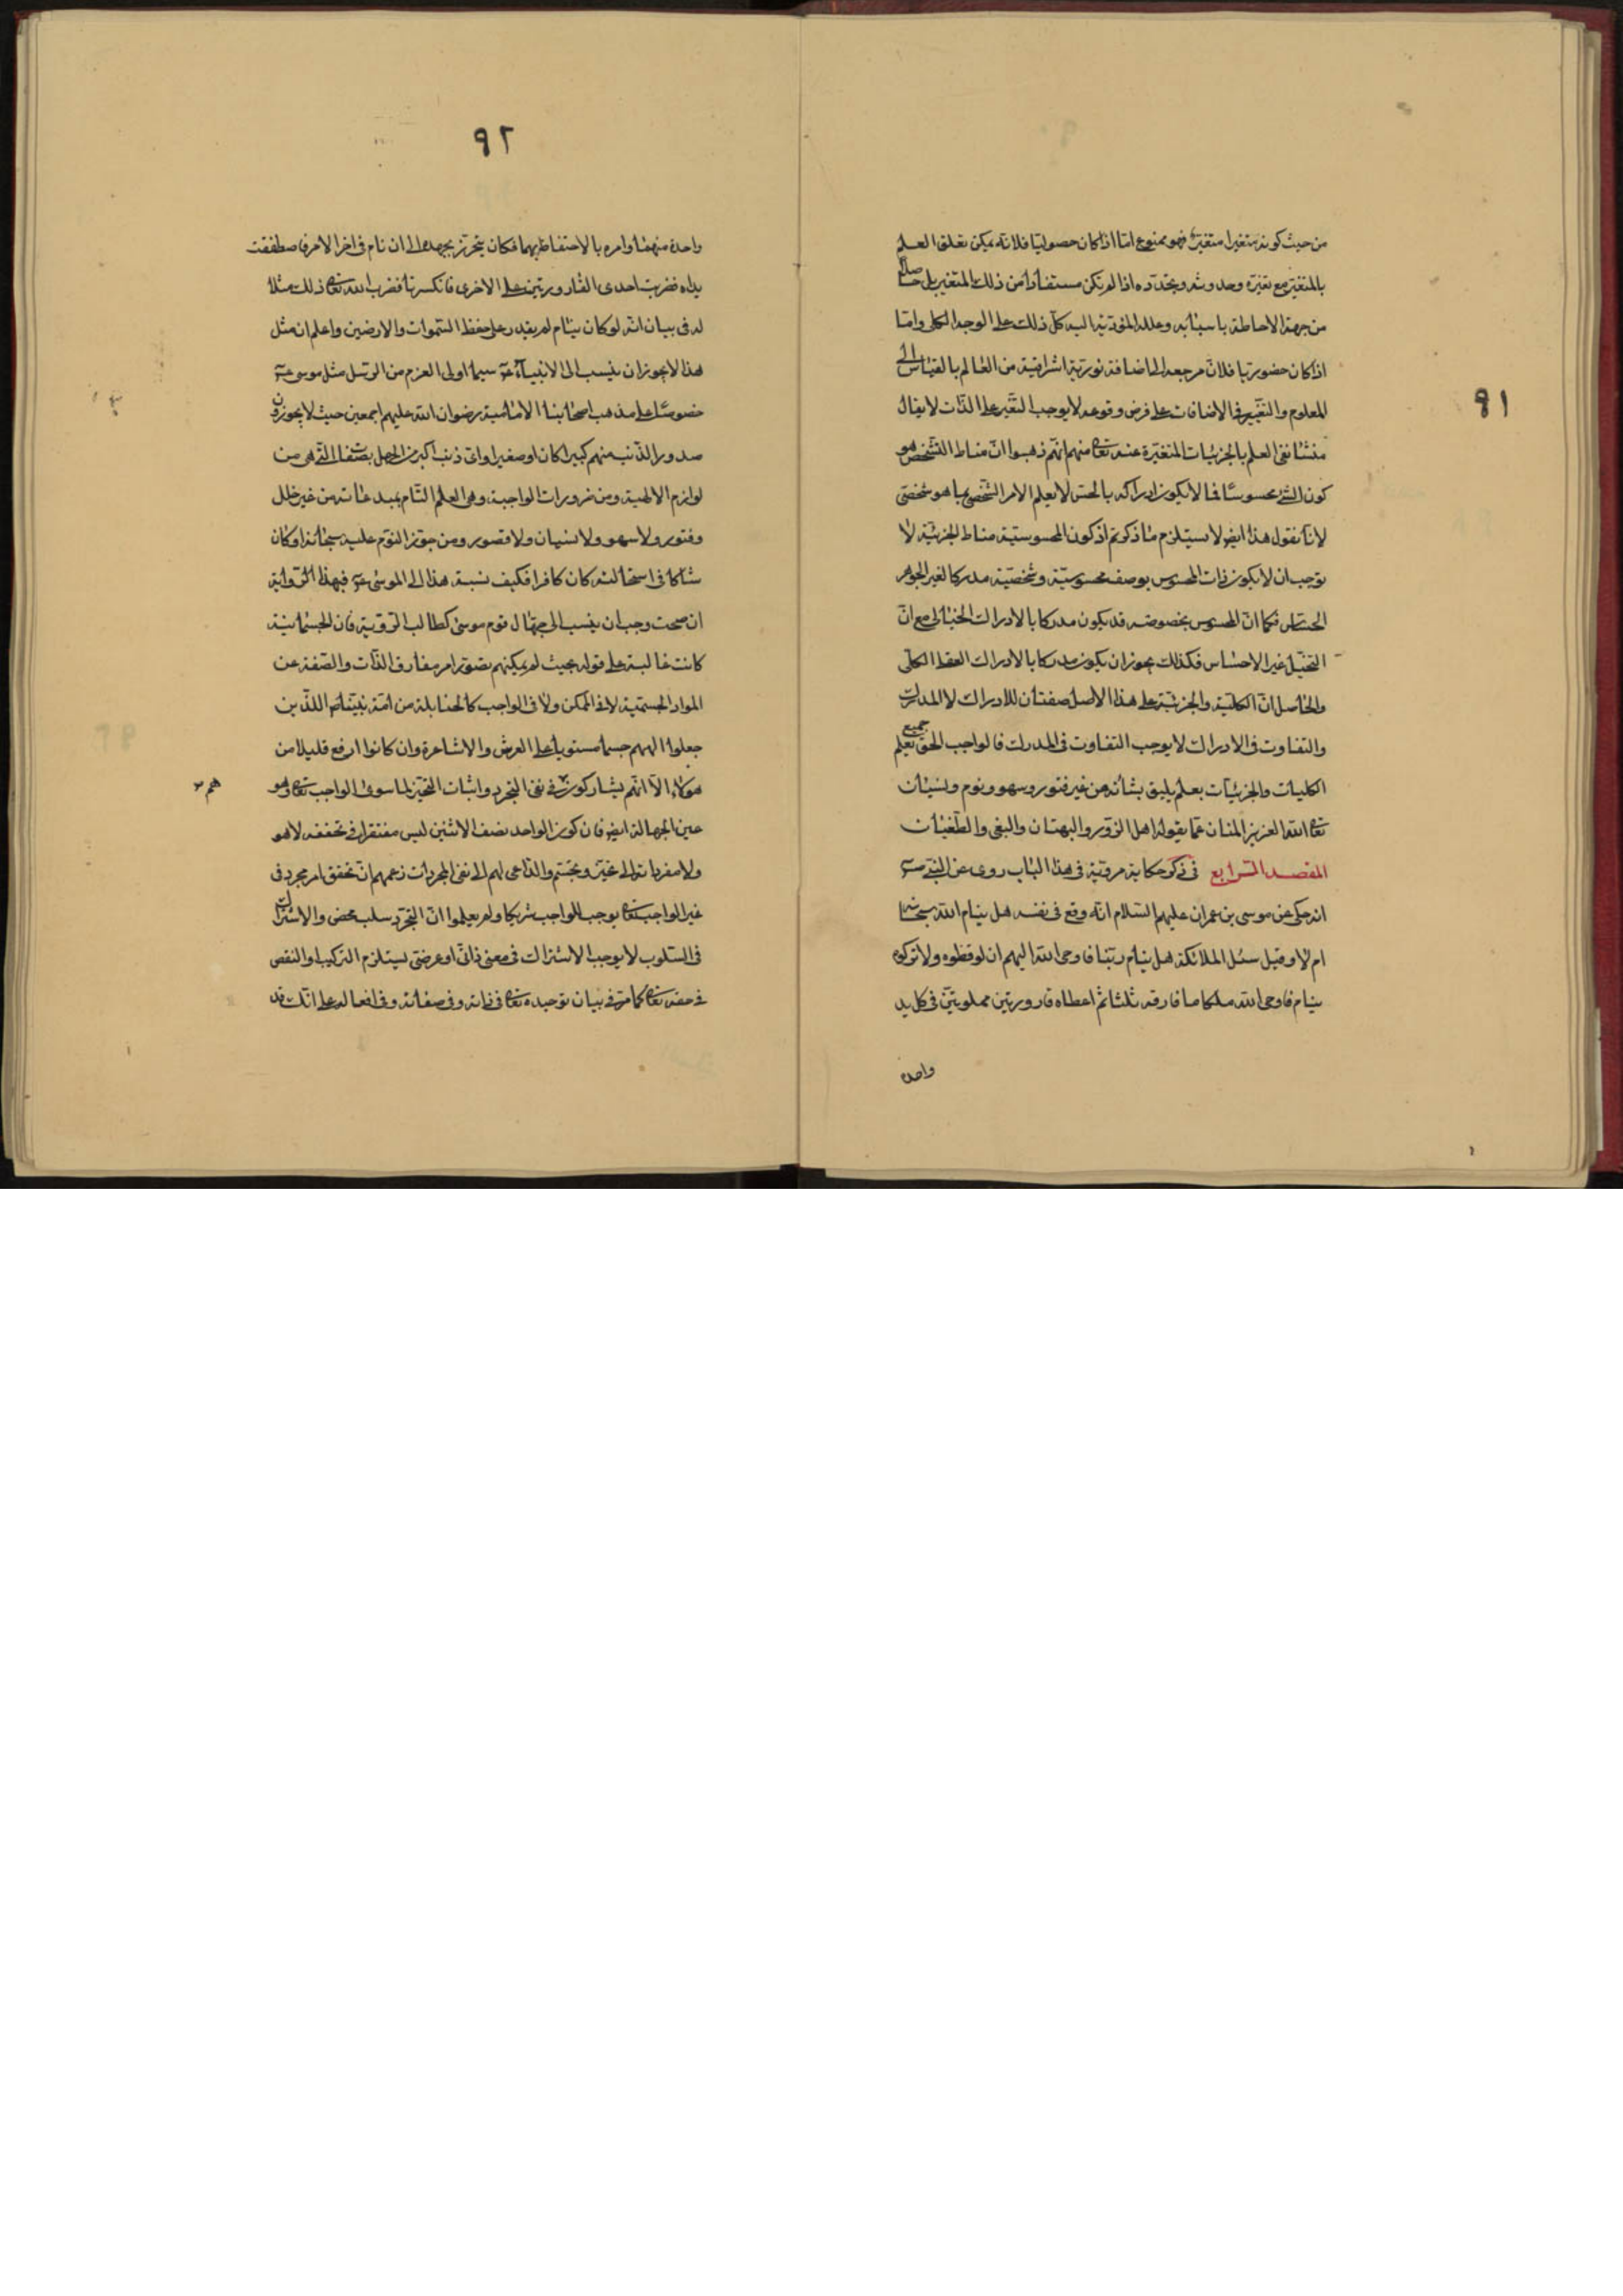 ٩١
من حيث كونه متغيرا متغيرة فهو ممنوع امّا اذا كان حصوليّا فلانّه يمكن تعلق العلم
بالمتغيّر مع تغيّره وحدوثه وتجدّده اذا لم تكن مستفادا من ذلك المتغير بل حاصلا
من جهة الاحاطة باسبابه وعلله المؤدّية اليه كلّ ذلك على الوجه الكلى وامّا
اذا كان حضوريّا فلانّ مرجعه الى اضافة نوريّة اشراقية من العالم بالقياس الى
المعلوم والتغيّير فى الاضافات على فرض وقوعه لا يوجب التغيّر على الذّات لا يقال
منشأ نفى العلم بالجزئيات المتغيّرة عنه تعا منهم انّهم ذهبوا انّ مناط التّشخص هو
كون الشئ محسوسا فما لا يكون ادراكه بالحسّ لا يعلم الامر الشّخصى بما هو شخصّى
لانّا نقول هذا ايض لا يستلزم ما ذكرتم اذ كون المحسوسيّة مناط الجزئيّة لا
توجب ان لا يكون ذات المحسوس بوصف محسوسيّته وشخصيّته مدركا لغير الجوهر
الحسّاس فكما انّ المحسوس بخصوصه قد يكون مدركا بالادراك الخيالى مع انّ
التخيّل غير الاحساس فكذلك يجوز ان يكون مدركا بالادراك العقلى الكلّى
والحاصل انّ الكليّة والجزئيّة على هذا الاصل صفتان للادراك لا المدرك
والتفاوت فى الادراك لا يوجب التفاوت فى المدرك فالواجب الحقّ يعلم جميع
الكليات والجزئيّات بعلم يليق بشأنه من غير فتور وسهو ونوم ونسيان
تعا الله العزيز المنان عمّا يقوله اهل الزّور والبهتان والبغى والطّغيان
المقصد الرّابع فى ذكر حكاية مرويّة فى هذا الباب روى عن النبّى ص
انه حكى عن موسى بن عمران عليهم السّلام انّه وقع فى نفسه هل ينام الله سبحانه
ام لا وقيل سئل الملائكة هل ينام ربّنا فاوحى الله اليهم ان يوقظوه ولا تركوه
ينام فاوحى الله ملكا فارقه ثلثا ثم اعطاه قارورتين مملويتين فى كل يد
واحدة
٩٢
واحدة منهما وامره بالاحتفاظ بهما فكان يتحرّز بجهده الى ان نام فى اخر الامر فاصطفقت
يداه فضربت احدى القارورتين على الاخرى فانكسرتا فضرب الله تعا ذلك مثلا
له فى بيان انّه لو كان ينام لم يقدر على حفظ السّموات والارضين واعلم ان مثل
هذا لا يجوز ان ينسب الى الانبياء ع سيما اولى العزم من الرّسل مثل موسى ع
خصوصا على مذهب اصحابنا الامامية رضوان الله عليهم اجمعين حيث لا يجوزون
صدور الذّنب منهم كبيرا كان او صغيرا واىّ ذنب اكبر من الجهل بصفاته الّتى هى من
لوازم الالهية ومن ضرورات الواجبية وهى العلم التّام بمبدعاته من غير خلل
وفتور ولا سهو ولا نسيان ولا قصور ومن جوّز النّوم عليه سبحانه او كان
شاكّا فى استحالته كان كافرا فكيف نسبة هذا الى الموسى ع فهذا الرّواية
ان صحت وجب ان ينسب الى جهّال قوم موسى كطالب الرّؤية فان الجسمانية
كانت غالبة على قوله بحيث لم يمكنهم تصوّر امر مفارق الذّات والصّفة عن
المواد الجسميّة لا فى الممكن ولا فى الواجب كالحنابلة من امّة نبيّنا ص اللذين
جعلوا الههم جسما مستويا على العرش والاشاعرة وان كانوا ارفع قليلا من
هؤلاء الّا انّهم يشاركونهم فى نفى التجرد واثبات التّحيّز لما سوى الواجب تعا وهو
هم
عين الجهالة ايض فان كون الواحد نصف الاثنين ليس مفتقرا فى تحققه لا هو
ولا مفرداته الى تحيّز وتجسّم والدّاعى لهم الى نفى المجردات زعمهم انّ تحقق امر مجرد فى
غير الواجب تعا يوجب للواجب شريكا ولم يعلموا انّ التجرّد سلب محض والاشتراك
فى السّلوب لا يوجب الاشتراك فى معنى ذاتّى او عرضّى ليستلزم التركيب او النقص
فى حقه تعا كما مرّ فى بيان توحيده تعا فى ذاته وفى صفاته وفى افعاله على انّك قد